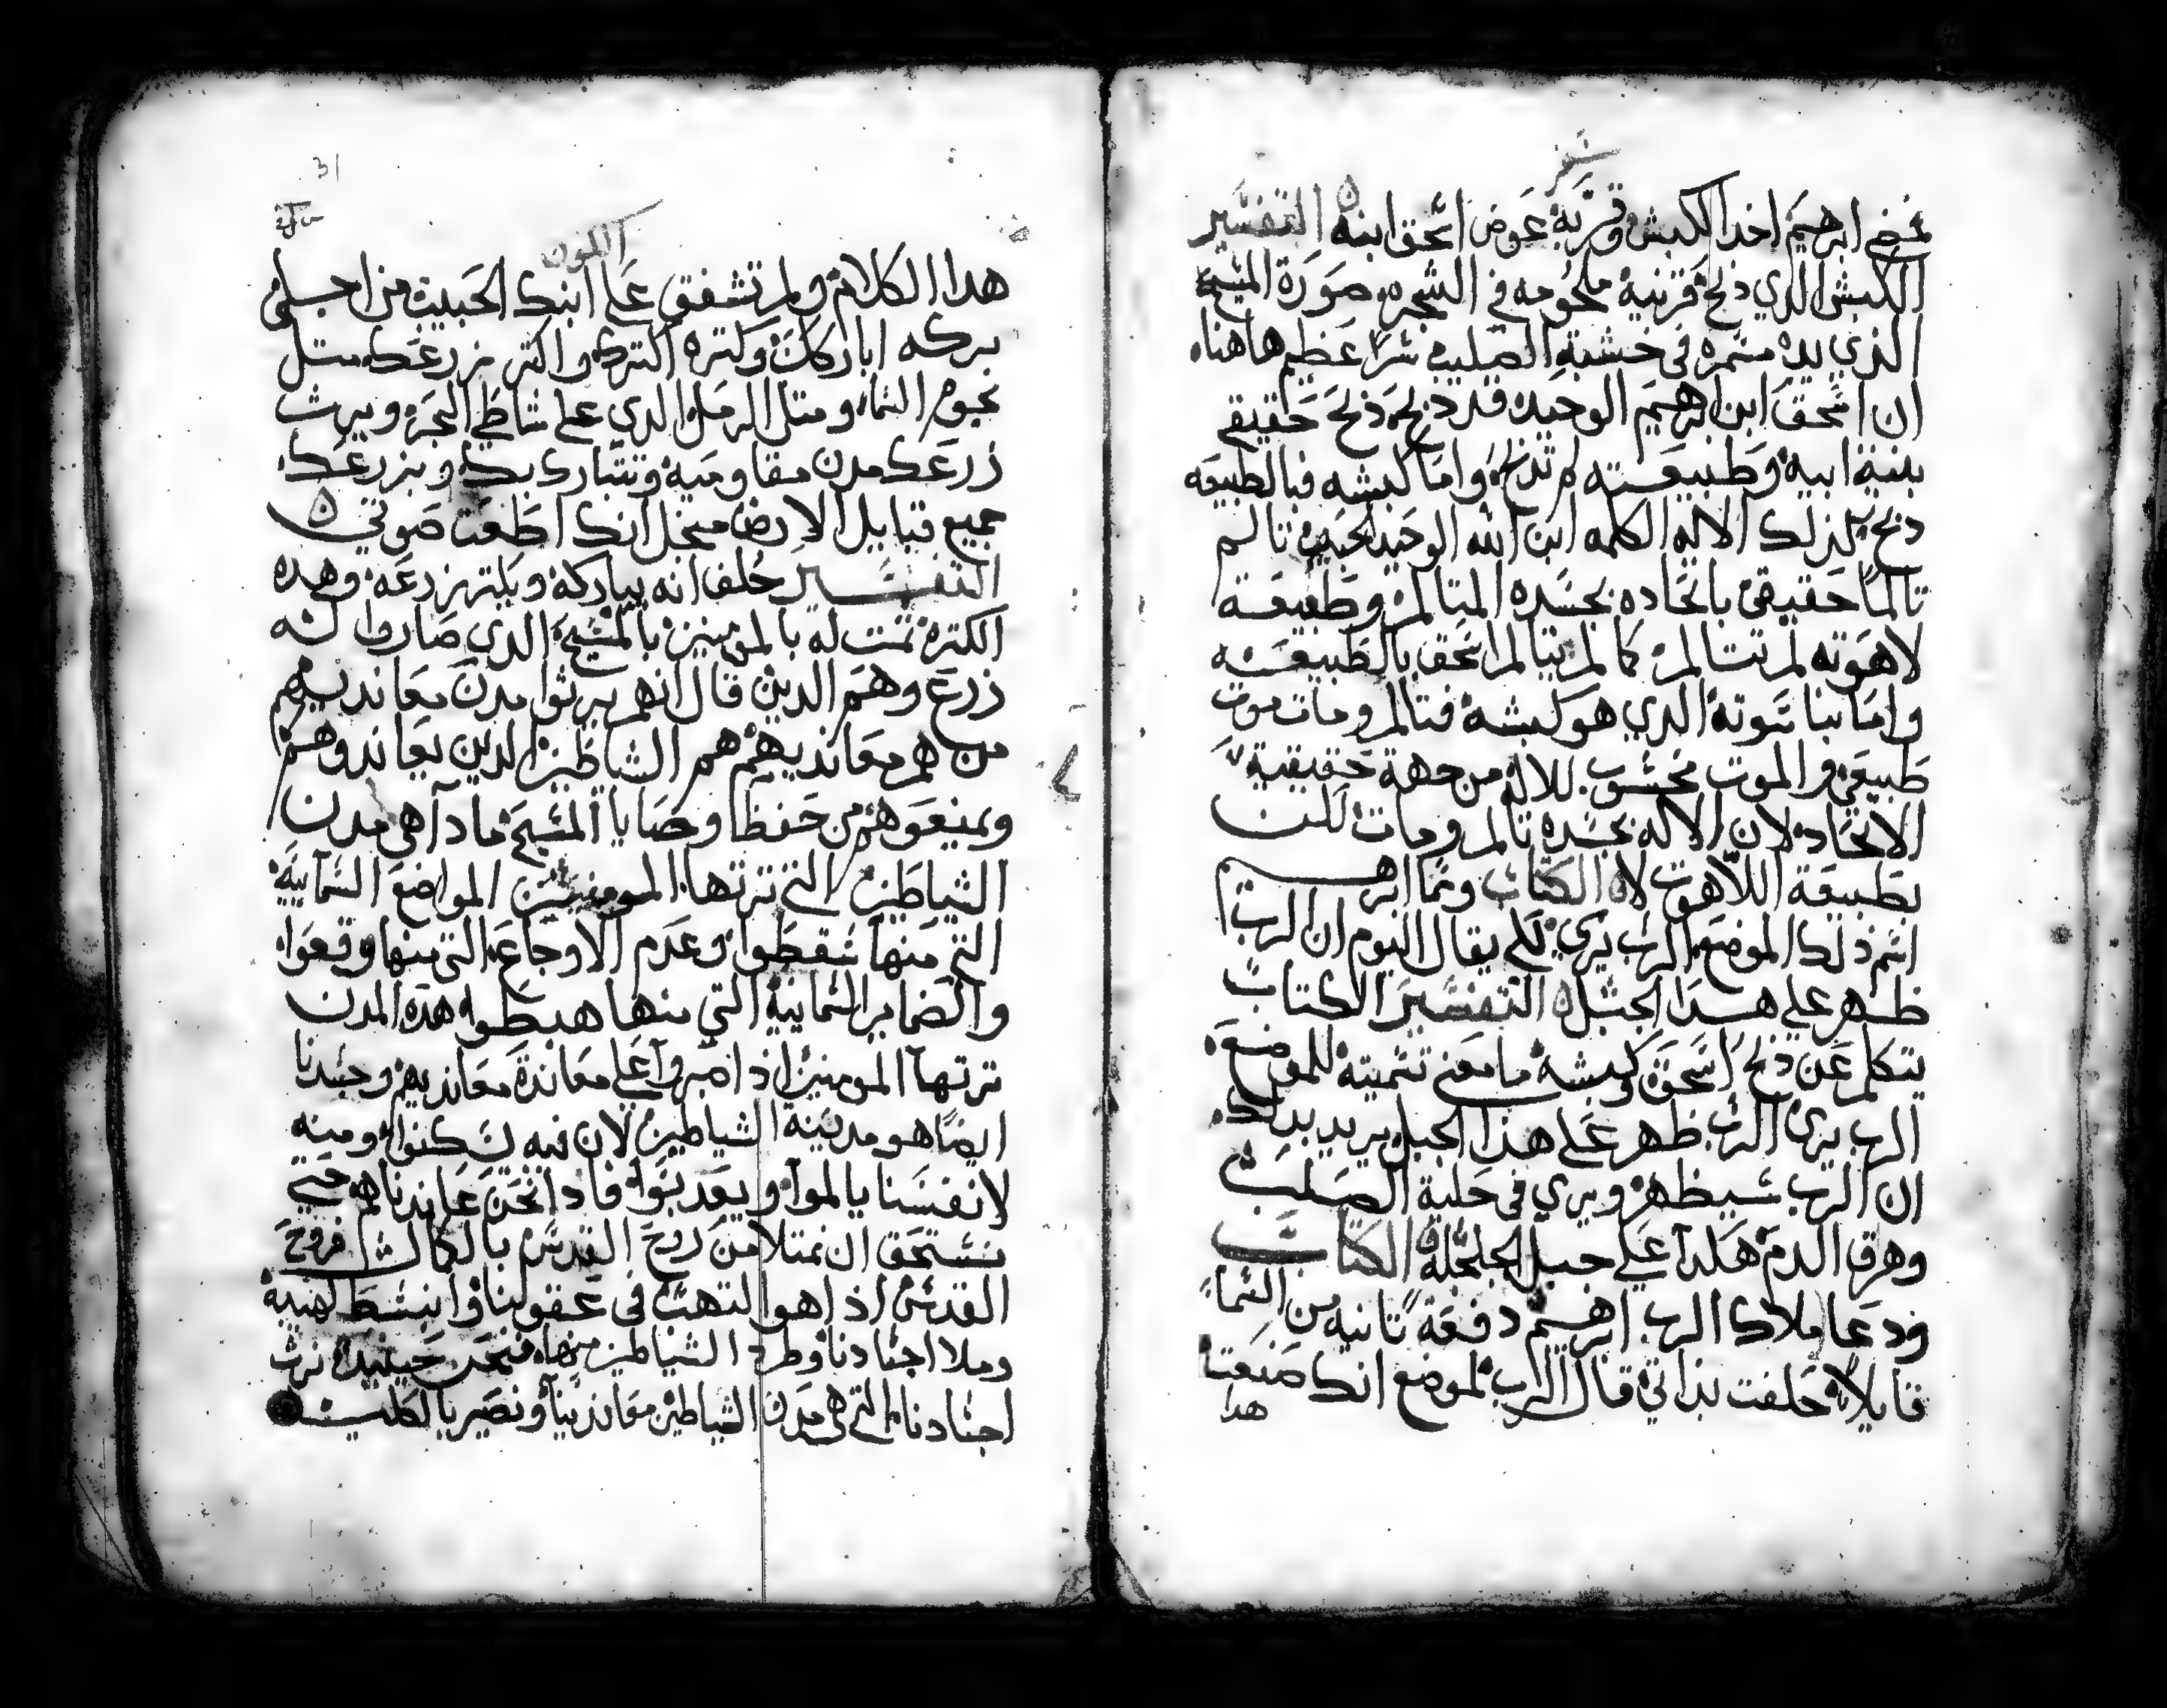 سفر
فمضى ابرهيم اخد الكبش وقربه عوض اسحق ابنه ه التفسير
الكبش الدي دبح قرنيه ملحومه في الشجره صورة المسيح
الذي يده مسمره في خشبة الصليب سرا عظيم هاهنا
ان اسحق ابن ابرهيم الوحيد قد دبحه ذبح حقيقي
بنية ابيه وطبيعته لم تدبح واما كبشه فبالطبيعه
دبح كذلك الاله الكلمه ابن الله الوحيد الحبيب تالم
تالما حقيقي باتحاده بجسده المتالم وطبيعة
لاهوته لم تتالم كما لم يتالم اسحق بالطبيعه
واما ناسوته الدي هو كبشه فتالم ومات موت
طبيعي والموت محسوب للاله من جهة حقيقية
الاتحاد لان الاله بجسده تالم ومات لكن
بطبيعة اللاهوت لا ه الكتاب وسما ابرهيم
اسم ذلك الموضع الرب يري لكي يقال اليوم ان الرب
ظهر على هذا الجبل ه التفسير الكتاب
يتكلم عن دبح اسحق وكبشه ما معنى تسميته للموضع
الرب يري الرب ظهر على هذا الجبل يريد بدلك
ان الرب سيظهر ويري في حلبة الصلب
وهرق الدم هكدا على جبل الجلجلة ه الكتاب
ودعا ملاك الرب ابرهيم دفعة تانيه من السماء
قايلا حلفت بذاتي قال الرب لموضع انك صنعت
هدا
31
التكوين
هدا الكلام ولم تشفق على ابنك الحبيب من اجلي
بركه اباركك وكتره اكترك واكتر زرعك متل
نجوم السماء ومتل الرمل الدي على شاطي البحر ويرث
زرعك مدن مقاوميه وتتبارك بك وبزرعك
جميع قبايل الارض من اجل انك اطعت صوتي ه
التفسير حلف انه يباركه ويكتر زرعه وهده
الكتره تمت له بالمومنين بالمسيح الدي صاروا له
زرع وهم الدين قال انهم يرثوا مدن معانديهم
من هم معانديهم هم الشياطين الدين يعاندوهم
ويمنعوهم من حفظ وصايا المسيح مادا هي مدن
الشياطين التي ترتها المومنين المواضع السمايية
التي منها سقطوا وعدم الاوجاع التي منها وقعوا
والضماير السمايية التي منها هبطوا هده المدن
ترتها المومنين اذ اصبروا على معاندة معانديهم وجسدنا
ايضا هو مدينة الشياطين لان فيه يسكنوا ومنه
لانفسنا يالموا ويعدبوا فادا نحن عاندناهم حتي
نستحق ان نمتلا من روح القدس بالكمال فروح
القدس اذ اهو التهب في عقولنا وانبسط لهيبه
وملا اجسادنا وطرد الشياطين منها فنحن حينيد نرث
اجسادنا التي هي مدن الشياطين معاندينا ونصير بالكليه